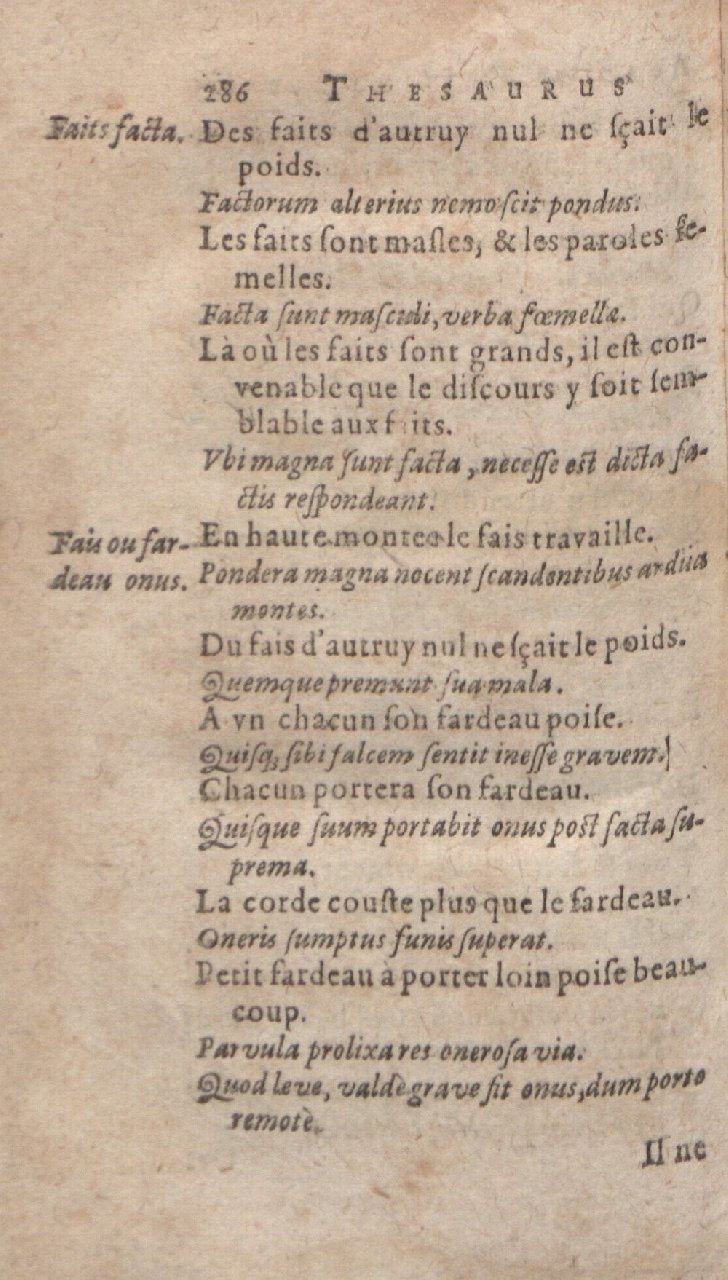 286 THESAURUS
Faits facta. Des faits d'autruy nul ne sçait le
poids.
Factorum alterius nemo scit pondus.
Les faits sont masles, & les paroles fe-
melles.
Facta sunt masculi, verba fœmellæ.
Là où les faits sont grands, il est con-
venable que le discours y soit sem-
blable aux faits.
Vbi magna sunt facta, necesse est dicta fa-
ctis respondeant.
Fais ou far- En haute montee le fais travaille.
deau onus. Pondera magna nocent scandentibus ardua
montes.
Du fais d'autruy nul ne sçait le poids.
Quemque premunt sua mala.
A vn chacun son fardeau poise.
Quisq; sibi falcem sentit inesse gravem.
Chacun portera son fardeau.
Quisque suum portabit onus post facta su-
prema.
La corde couste plus que le fardeau.
Oneris sumptus funis superat.
Petit fardeau à porter loin poise beau-
coup.
Parvula prolixa res onerosa via.
Quod leve, valdè grave fit onus, dum porto
remotè.
Il ne